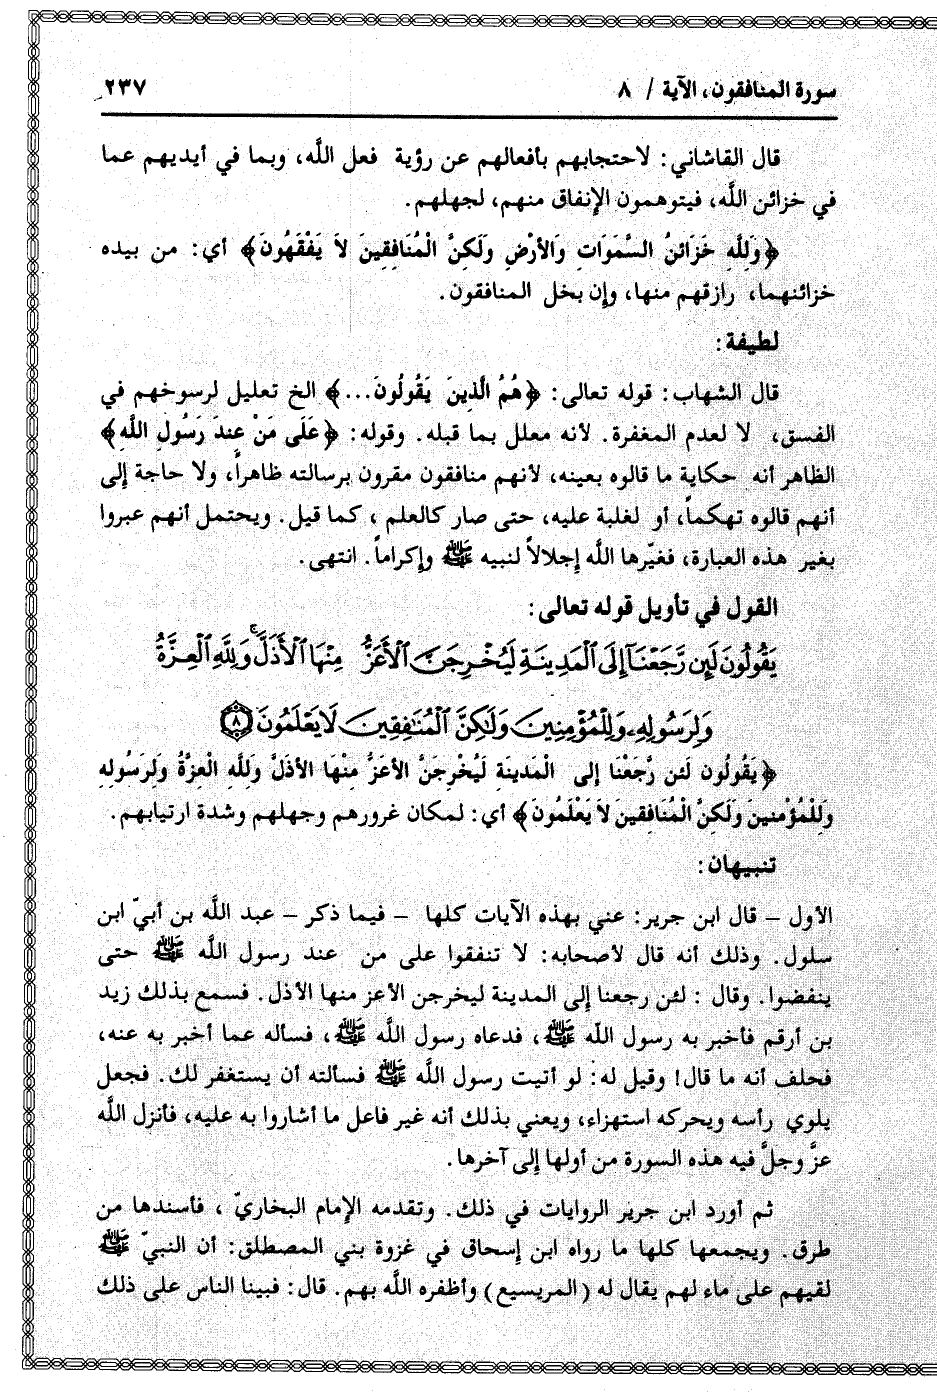 سورة المنافقون، الآية / ٨
٢٣٧
قال القاشاني: لاحتجابهم بأفعالهم عن رؤية فعل اللَّه، وبما في أيديهم عما
في خزائن اللَّه، فيتوهمون الإنفاق منهم، لجهلهم.
﴿وَلِلَّهِ خَزَائِنُ السَّمَوَاتِ وَالأَرْضِ وَلَكِنَّ الْمُنَافِقِينَ لاَ يَفْقَهُونَ﴾ أي: من بيده
خزائنهما، رازقهم منها، وإن بخل المنافقون.
لطيفة:
قال الشهاب: قوله تعالى: ﴿هُمُ الَّذِينَ يَقُولُونَ...﴾ الخ تعليل لرسوخهم في
الفسق، لا لعدم المغفرة. لأنه معلل بما قبله. وقوله: ﴿عَلَى مَنْ عِندَ رَسُولِ اللَّهِ﴾
الظاهر أنه حكاية ما قالوه بعينه، لأنهم منافقون مقرون برسالته ظاهراً، ولا حاجة إلى
أنهم قالوه تهكماً، أو لغلبة عليه، حتى صار كالعلم، كما قيل. ويحتمل أنهم عبروا
بغير هذه العبارة، فغيّرها اللَّه إجلالاً لنبيه ﷺ وإكراماً. انتهى.
القول في تأويل قوله تعالى:
يَقُولُونَ لَئِن رَّجَعْنَآ إِلَى ٱلْمَدِينَةِ لَيُخْرِجَنَّ ٱلْأَعَزُّ مِنْهَا ٱلْأَذَلَّ ۚ وَلِلَّهِ ٱلْعِزَّةُ
وَلِرَسُولِهِۦ وَلِلْمُؤْمِنِينَ وَلَٰكِنَّ ٱلْمُنَٰفِقِينَ لَا يَعْلَمُونَ ٨
﴿يَقُولُونَ لَئن رَّجَعْنَا إِلى الْمَدِينَةِ لَيُخْرِجَنَّ الأَعَزُّ مِنْهَا الأَذَلَّ وَلِلَّهِ الْعِزَّةُ وَلِرَسُولِهِ
وَلِلْمُؤْمِنِينَ وَلَكِنَّ الْمُنَافِقِينَ لاَ يَعْلَمُونَ﴾ أي: لمكان غرورهم وجهلهم وشدة ارتيابهم.
تنبيهان:
الأول – قال ابن جرير: عني بهذه الآيات كلها – فيما ذكر – عبد اللَّه بن أبيّ ابن
سلول. وذلك أنه قال لأصحابه: لا تنفقوا على من عند رسول اللَّه ﷺ حتى
ينفضوا. وقال: لئن رجعنا إلى المدينة ليخرجن الأعز منها الأذل. فسمع بذلك زيد
بن أرقم فأخبر به رسول اللَّه ﷺ، فدعاه رسول اللَّه ﷺ، فسأله عما أخبر به عنه،
فحلف أنه ما قال! وقيل له: لو أتيت رسول اللَّه ﷺ فسألته أن يستغفر لك. فجعل
يلوي رأسه ويحركه استهزاء، ويعني بذلك أنه غير فاعل ما أشاروا به عليه، فأنزل اللَّه
عزَّ وجلَّ فيه هذه السورة من أولها إلى آخرها.
ثم أورد ابن جرير الروايات في ذلك. وتقدمه الإمام البخاريّ، فأسندها من
طرق. ويجمعها كلها ما رواه ابن إسحاق في غزوة بني المصطلق: أن النبيّ ﷺ
لقيهم على ماء لهم يقال له (المريسيع) وأظفره اللَّه بهم. قال: فبينا الناس على ذلك